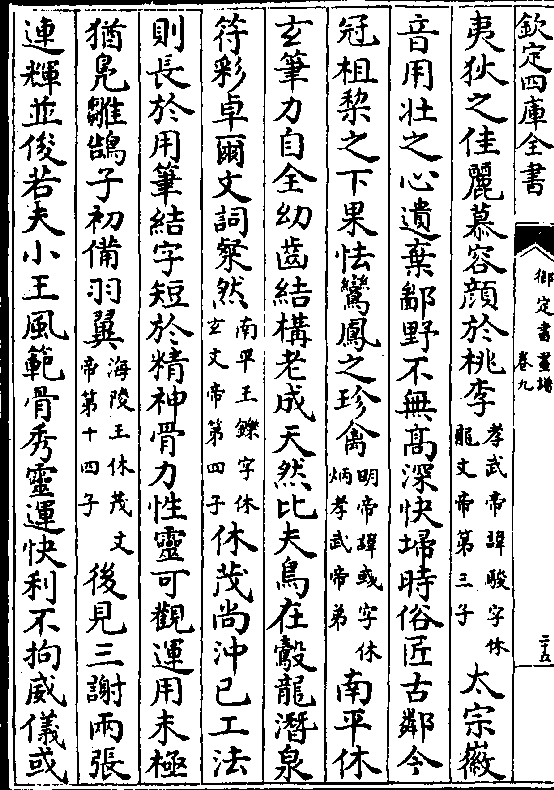 欽定四庫全書
御定書畫譜
卷九
二十五
夷狄之佳麗慕容顔於桃李孝武帝諱駿字休龍文帝第三子太宗徽
音用壯之心遺棄鄙野不無高深快埽時俗匠古鄰今
冠柤棃之下果怯鸞鳳之珍禽明帝諱彧字休炳孝武帝弟南平休
玄筆力自全幼齒結構老成天然比夫鳥在鷇龍潛泉
符彩卓爾文詞粲然南平王鑠字休玄文帝第四子休茂尚沖已工法
則長於用筆結字短於精神骨力性靈可觀運用未極
猶鳧雛鵠子初備羽翼海陵王休茂文帝第十四子後見三謝兩張
連輝並俊若夫小王風範骨秀靈運快利不拘威儀或